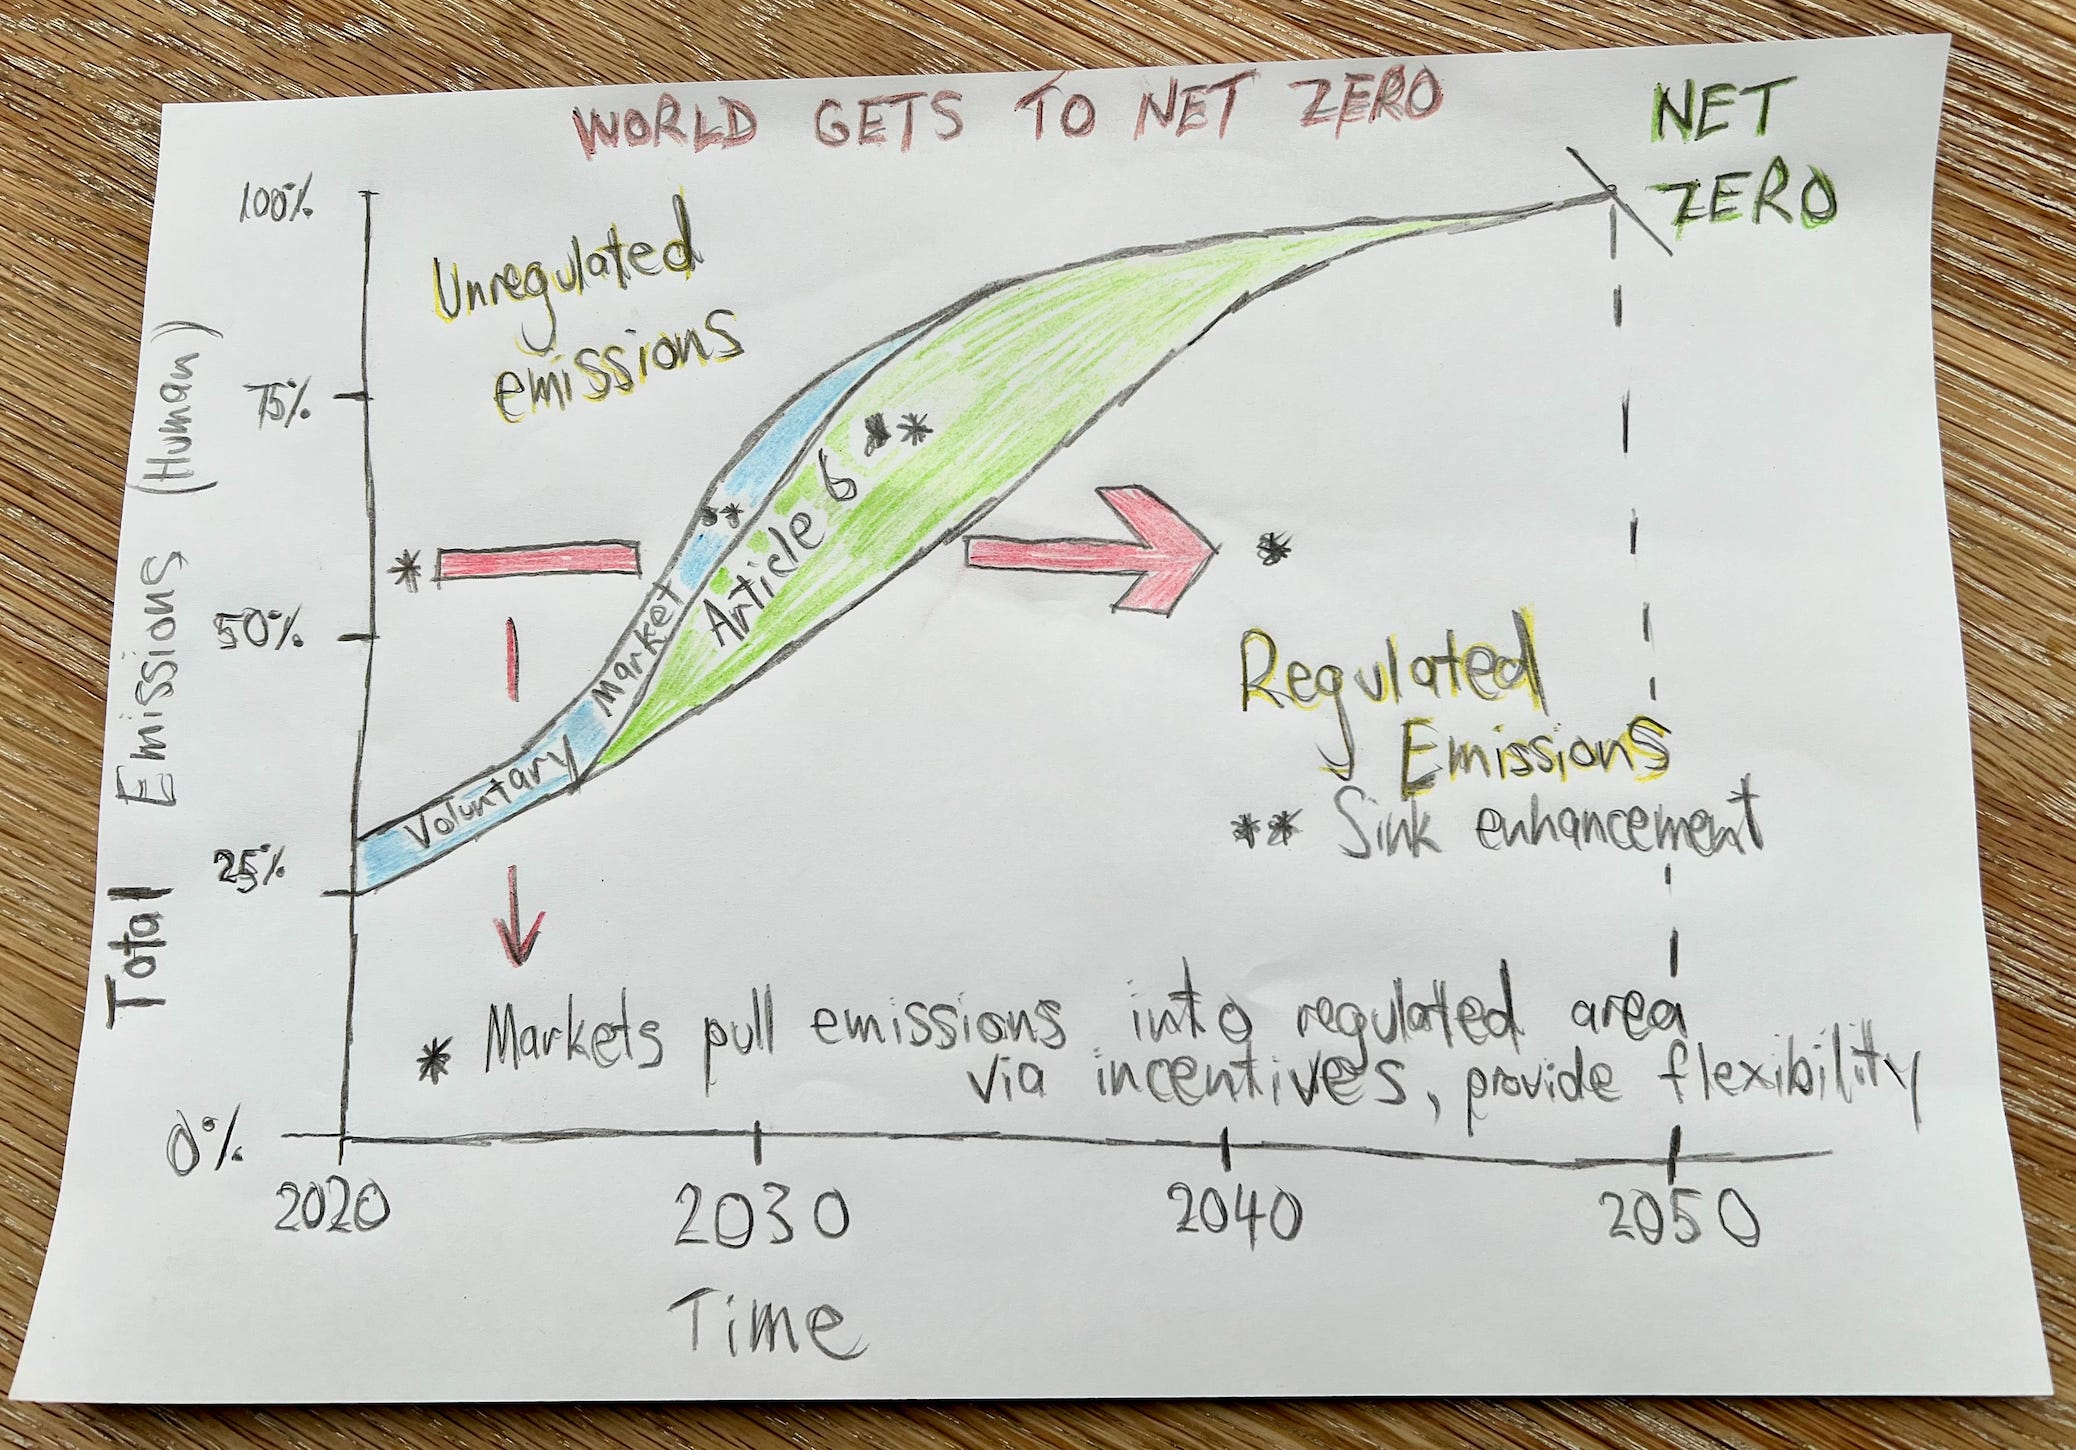 WORLD GETS TO NET ZERO
NET
ZERO
100%
Unregulated
emissions
75%
Total Emissions (Human)
**
Article 6 **
*
*
50%
Voluntary Market
Regulated
Emissions
** Sink enhancement
25%
* Markets pull emissions into regulated area
via incentives, provide flexibility
0%
2020
2030
2040
2050
Time